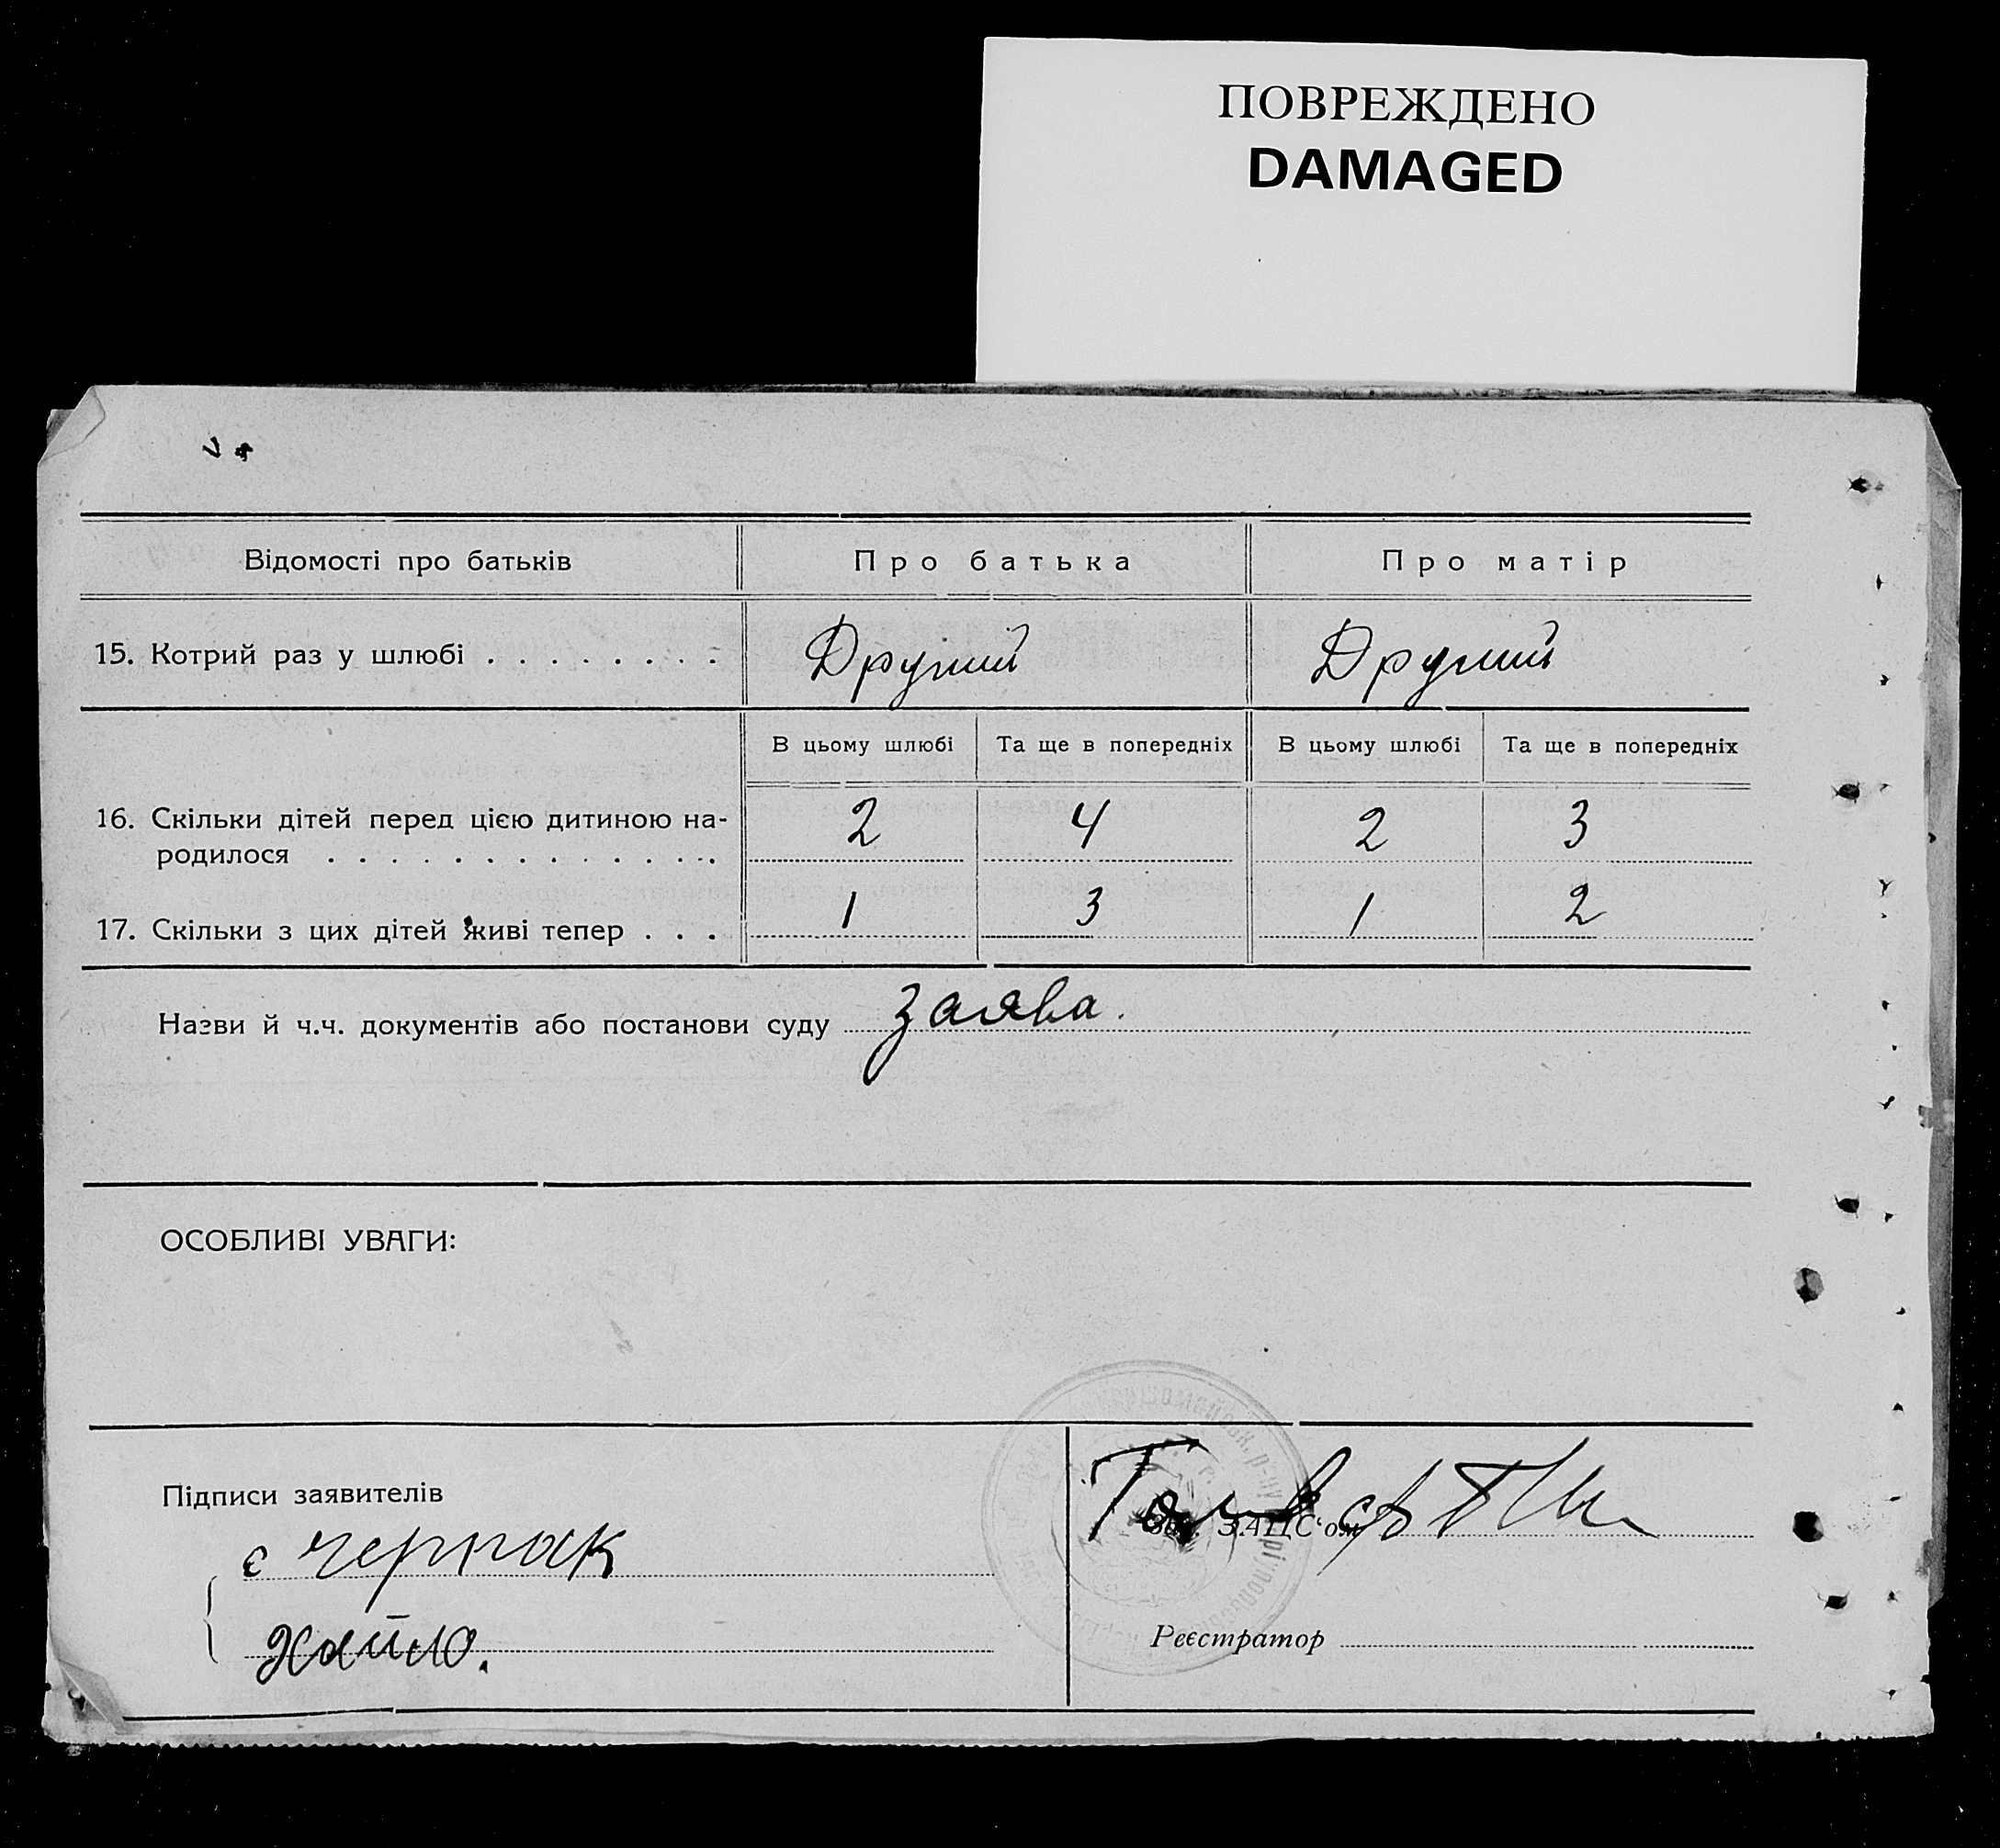 ПОВРЕЖДЕНО
DAMAGED
Відомості про батьків
Про батька
Про матір
15. Котрий раз у шлюбі . . . . . . . .
Другий
Другий
В цьому шлюбі
Та ще в попередніх
В цьому шлюбі
Та ще в попередніх
16. Скільки дітей перед цією дитиною на-
родилося . . . . . . . . . . . . . .
2
4
2
3
17. Скільки з цих дітей живі тепер . . .
1
3
1
2
Назви й ч.ч. документів або постанови суду заява.
ОСОБЛИВІ УВАГИ:
Підписи заявителів
є черпак
Зав. ЗАПС'ом
Реєстратор